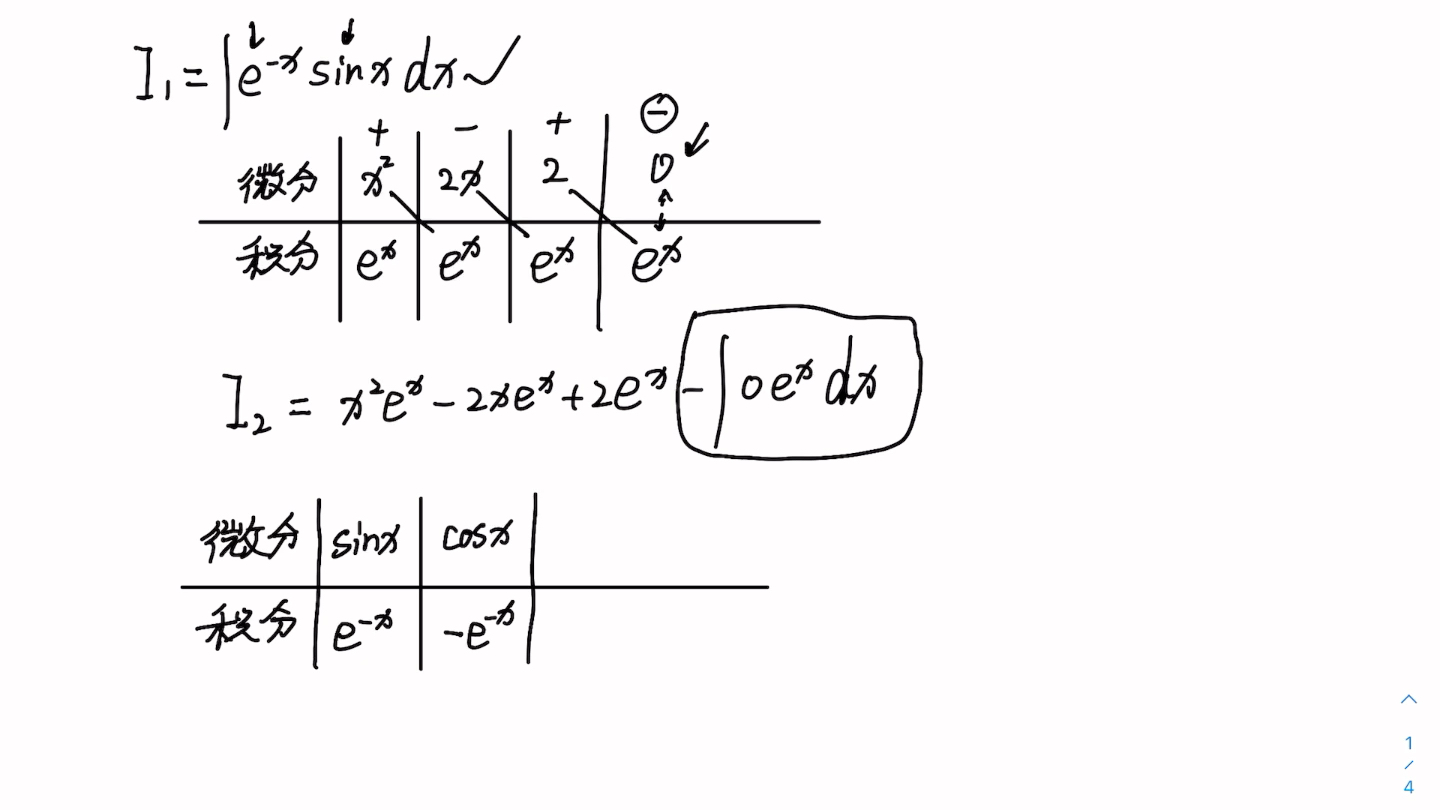 I₁ = ∫e⁻ˣ sinx dx ✓
+ − + ⊖
微分 x² 2x 2 0
积分 eˣ eˣ eˣ eˣ
I₂ = x²eˣ − 2xeˣ + 2eˣ − ∫0eˣ dx
微分 sinx cosx
积分 e⁻ˣ −e⁻ˣ
1
/
4